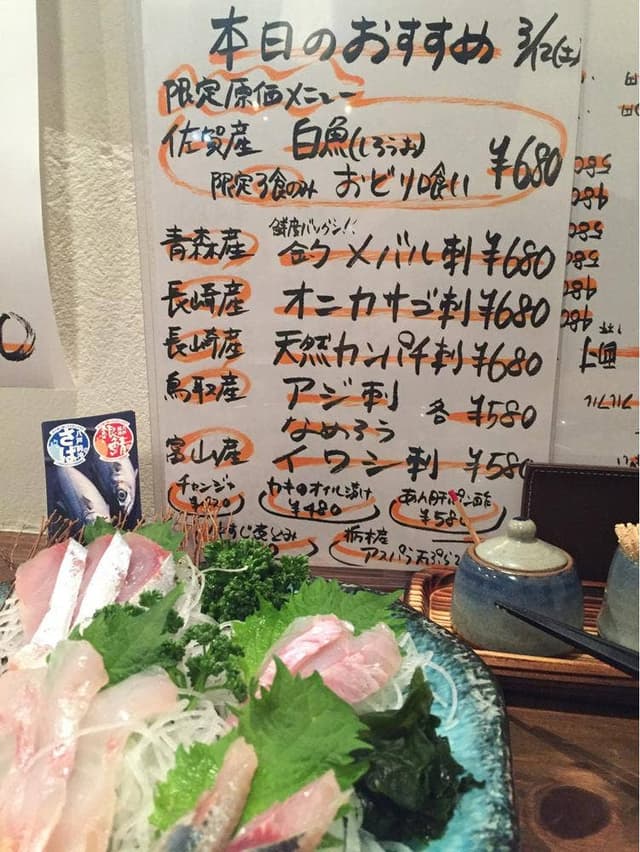 本日のおすすめ 3/12(土)
限定原価メニュー
佐賀産 白魚(しろうお) ¥680
限定3食のみ おどり喰い
鮮度バツグン!!
青森産 釣メバル刺 ¥680
長崎産 オニカサゴ刺 ¥680
長崎産 天然カンパチ刺 ¥680
鳥取産 アジ刺
なめろう 各¥580
富山産 イワシ刺 ¥580
チャンジャ カキのオイル漬け あん肝ポン酢
¥480 ¥580
栃木産
アスパラ天ぷら
さば
580
480
580
580
480
480